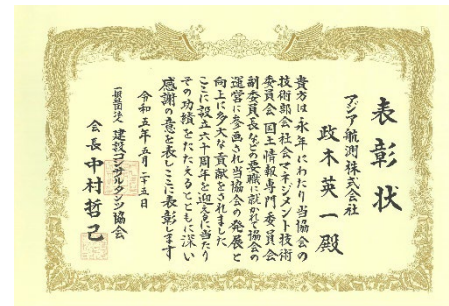 表彰状
アジア航測株式会社
政木英一殿
貴方は永年にわたり当協会の
技術部会社会マネジメント技術
委員会国土情報専門委員会
副委員長などの要職に就かれて協会の
運営に参画され当協会の発展と
向上に多大な貢献をされました
ここに設立六十周年を迎えるに当たり
その功績をたたえるとともに深い
感謝の意を表しここに表彰します
令和五年五月二十五日
一般社団法人 建設コンサルタンツ協会
会長中村哲己